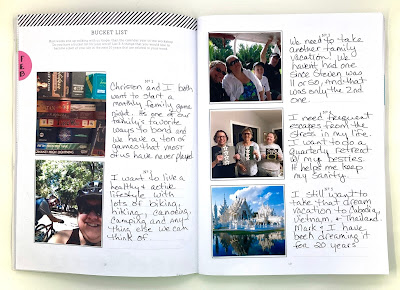 BUCKET LIST
FEB
Nº 1
Christon and I both
want to start a
monthly family game
night. As one of our
family's favorite
ways to bond and
we have a ton of
games that most
of us have never played
Nº 2
I want to live a
healthy & active
lifestyle with
lots of biking,
hiking, canoeing,
camping and any
thing else we can
think of
Nº 3
We need to take
another family
vacation! We
havent had one
since Steven was
11 or so, and that
was only the 2nd
one.
Nº 4
I need frequent
escapes from the
stress in my life.
I want to do a
Quarterly retreat
w/ my besties.
It helps me keep
my sanity.
Nº 5
I still want to
take that dream
vacation to Cambodia,
Vietnam, & Thailand.
Mark & I have
been dreaming it for
20 years